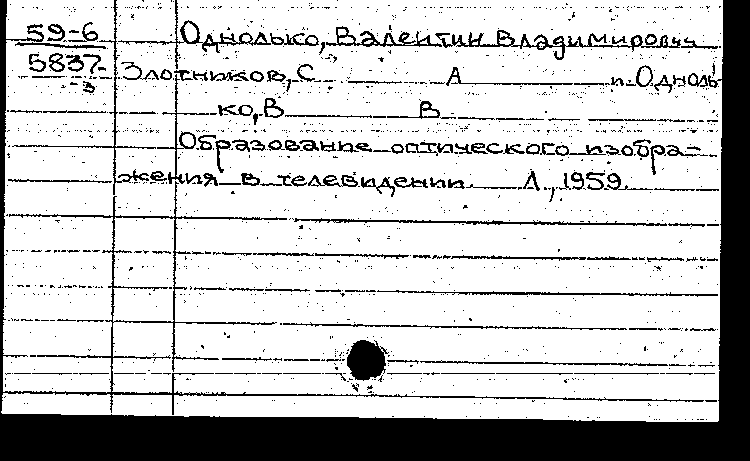 59-6
5837-3
Однолько, Валентин Владимирович
Злотников, С А и Одноль-
ко, В В
Образование оптического изобра-
жения в телевидении. Л., 1959.